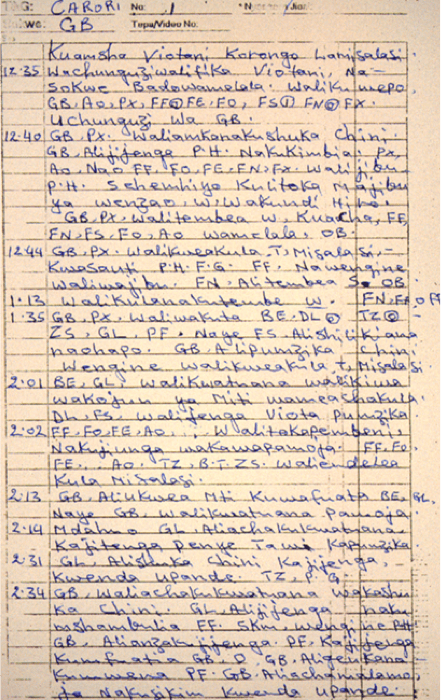 TAG: CARORI No: 1
GB Tape/Video No:
Kuamsha Viotani Korongo Lamisalasi.
12.35 Wachunguziwalifika Viotani, Na
Sokwe Badowamelala. Walikuwepo,
GB, AO, PX, FF FE, FO, FS FN FX.
Uchunguzi Wa GB.
12.40 GB. PX. Waliamkanakushuka Chini.
GB. Alijijenga P.H. NaKuKimbia, PX,
AO, Nao FF, FO, FE, FN, FX. Walijibu
P.H. Sehemhiyo Kulitoka Majibu
ya Wenzao, W, Wakundi Hiho.
GB, PX. Walitembea W. Kuacha, FF,
FN, FS, FO, AO Wamelala, OB.
12.44 GB, PX. Walikweakula, T, Misalasi,
Kwasauti P.H. F.G. FF. Nawengine
Waliwajibu. FN. Alitembea S. OB
1.13 Walikutanakutembe W. FN, FE, O FF
1.35 GB, PX. Waliwakuta BE. DL TZ
ZS. GL, PF. Naye FS Alishilikiana
naohapo. GB. Alipumzika Chini
Wengine Walikweakula, T, Misalasi
2.01 BE, GL, Walikwatnana walikiwa
Wakojun ya Miti Wameachakula.
Dh, FS. Walijenga Viota Pumzika.
2.02 FF, FO, FE, AO, Walitokapembeni,
Nakujiunga Wakawapamoja. FF, FO,
FE. AO. TZ, B.T. ZS. Waliendelea
Kula Misalasi.
2.13 GB. Aliukwea Mti Kuwafuata BE, GL,
Naye GB. Walikwatnana Pamoja.
2.14 Mdahmo GL Aliachakukwatnana
Kajitenga Penye Tawi Kapumzika.
2.31 GL, Alishuka Chini Kajijenga,
Kwenda Upande. TZ, P.G.
2.34 GB, Waliachakukwatnana Wakashu
Ka Chini. GL. Alijijenga naku
mshambulia FF. Skm, Wengine P.H
GB. Alianzakujijenga. PF, Kajijenga
Kumfuatia GB. O, GB. Aligeukana
Kumwena PF. GB. Aliachamalamo,
Nakujikim Kwenda Upande.